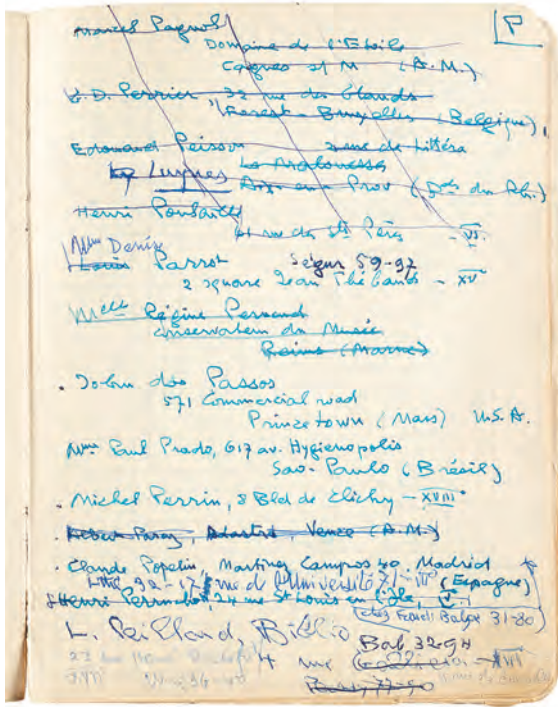 P
Marcel Pagnol
Domaine de l'Etoile
Cagnes s/ M (A.M.)
C.D. Perrier 32 rue des Glands
Forest - Bruxelles (Belgique)
Edouard Peisson rue de Littéra
La Malouesse
Luynes Aix en Prov (B. du Rh.)
Henri Poulaille
41 rue des Sts Pères - VI
Mme Denise
Louis Parrot Ségur 59-97
2 square Jean Thébaud - XV
Melle Régine Pernoud
conservateur du Musée
Reims (Marne)
. John dos Passos
571 Commercial road
Princetown (Mass) U.S.A.
Mme Paul Prado, 617 av. Hygienopolis
Sao-Paulo (Brésil)
. Michel Perrin, 8 Bld de Clichy - XVIII°
. Albert Paraz, Vence (A.M.)
. Claude Popelin, Martinez Campos 40. Madrid
Litté 92-17 rue de l'Université 71 - VII° (Espagne)
Henri Perruchot, 24 rue St Louis en l'île, IV
Feredi Balga 31-80
L. Peillard, Biblio
Bal 32-94
4 rue XVI
77-90